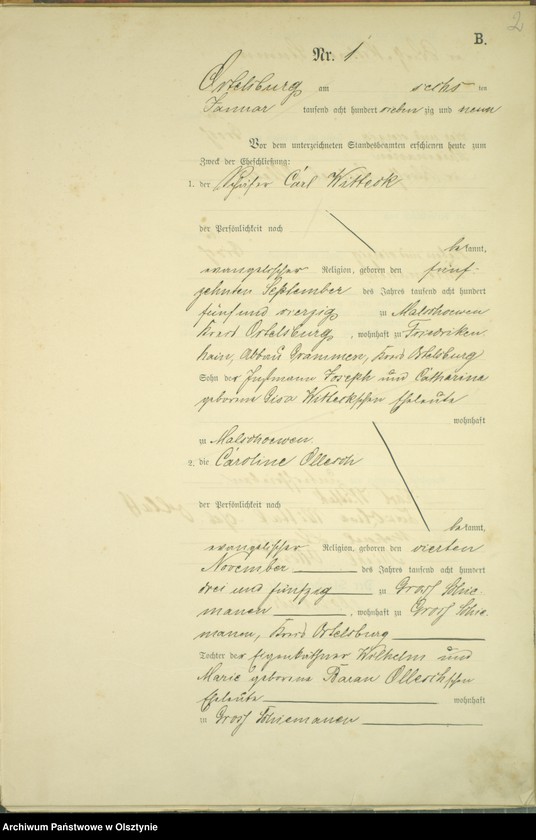 2
B.
Nr. 1
Ortelsburg am sechs ten
Januar tausend acht hundert sieben zig und neun
Vor dem unterzeichneten Standesbeamten erschienen heute zum
Zweck der Eheschließung:
1. der Schäfer Carl Witteck
der Persönlichkeit nach
bekannt,
evangelischer Religion, geboren den fünf-
zehnten September des Jahres tausend acht hundert
fünf und vierzig zu Malschoewen
Kreis Ortelsburg, wohnhaft zu Friedriken
hain, Abbau Grammen, Kreis Ortelsburg
Sohn der Instmann Joseph und Catharina
geborene Witteckschen Eheleute
wohnhaft
zu Malschoewen.
2. die Caroline Ollesch
der Persönlichkeit nach
bekannt,
evangelischer Religion, geboren den vierten
November des Jahres tausend acht hundert
drei und fünfzig zu Gross Schie-
manen, wohnhaft zu Gross Schie-
manen, Kreis Ortelsburg
Tochter der Eigenkäthner Wilhelm und
Marie geborene Baran Olleschschen
Eheleute wohnhaft
zu Gross Schiemanen
Archiwum Państwowe w Olsztynie